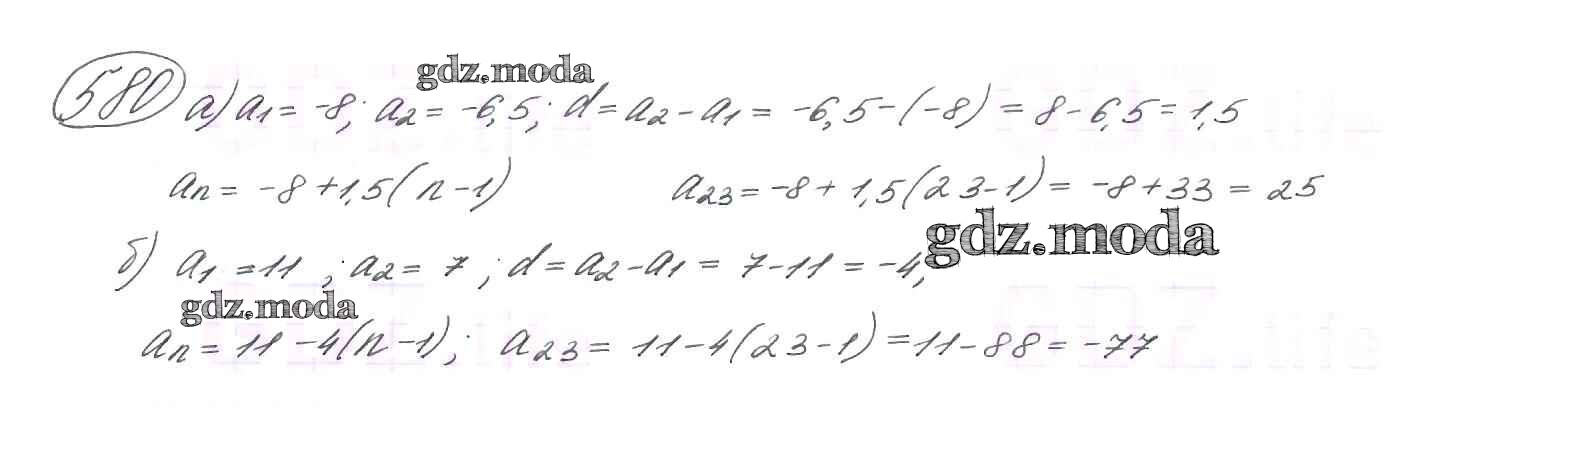 gdz.moda
580 а) a₁ = -8; a₂ = -6,5; d = a₂ - a₁ = -6,5 - (-8) = 8 - 6,5 = 1,5
aₙ = -8 + 1,5(n - 1) a₂₃ = -8 + 1,5(23 - 1) = -8 + 33 = 25
gdz.moda
б) a₁ = 11; a₂ = 7; d = a₂ - a₁ = 7 - 11 = -4;
gdz.moda
aₙ = 11 - 4(n - 1); a₂₃ = 11 - 4(23 - 1) = 11 - 88 = -77